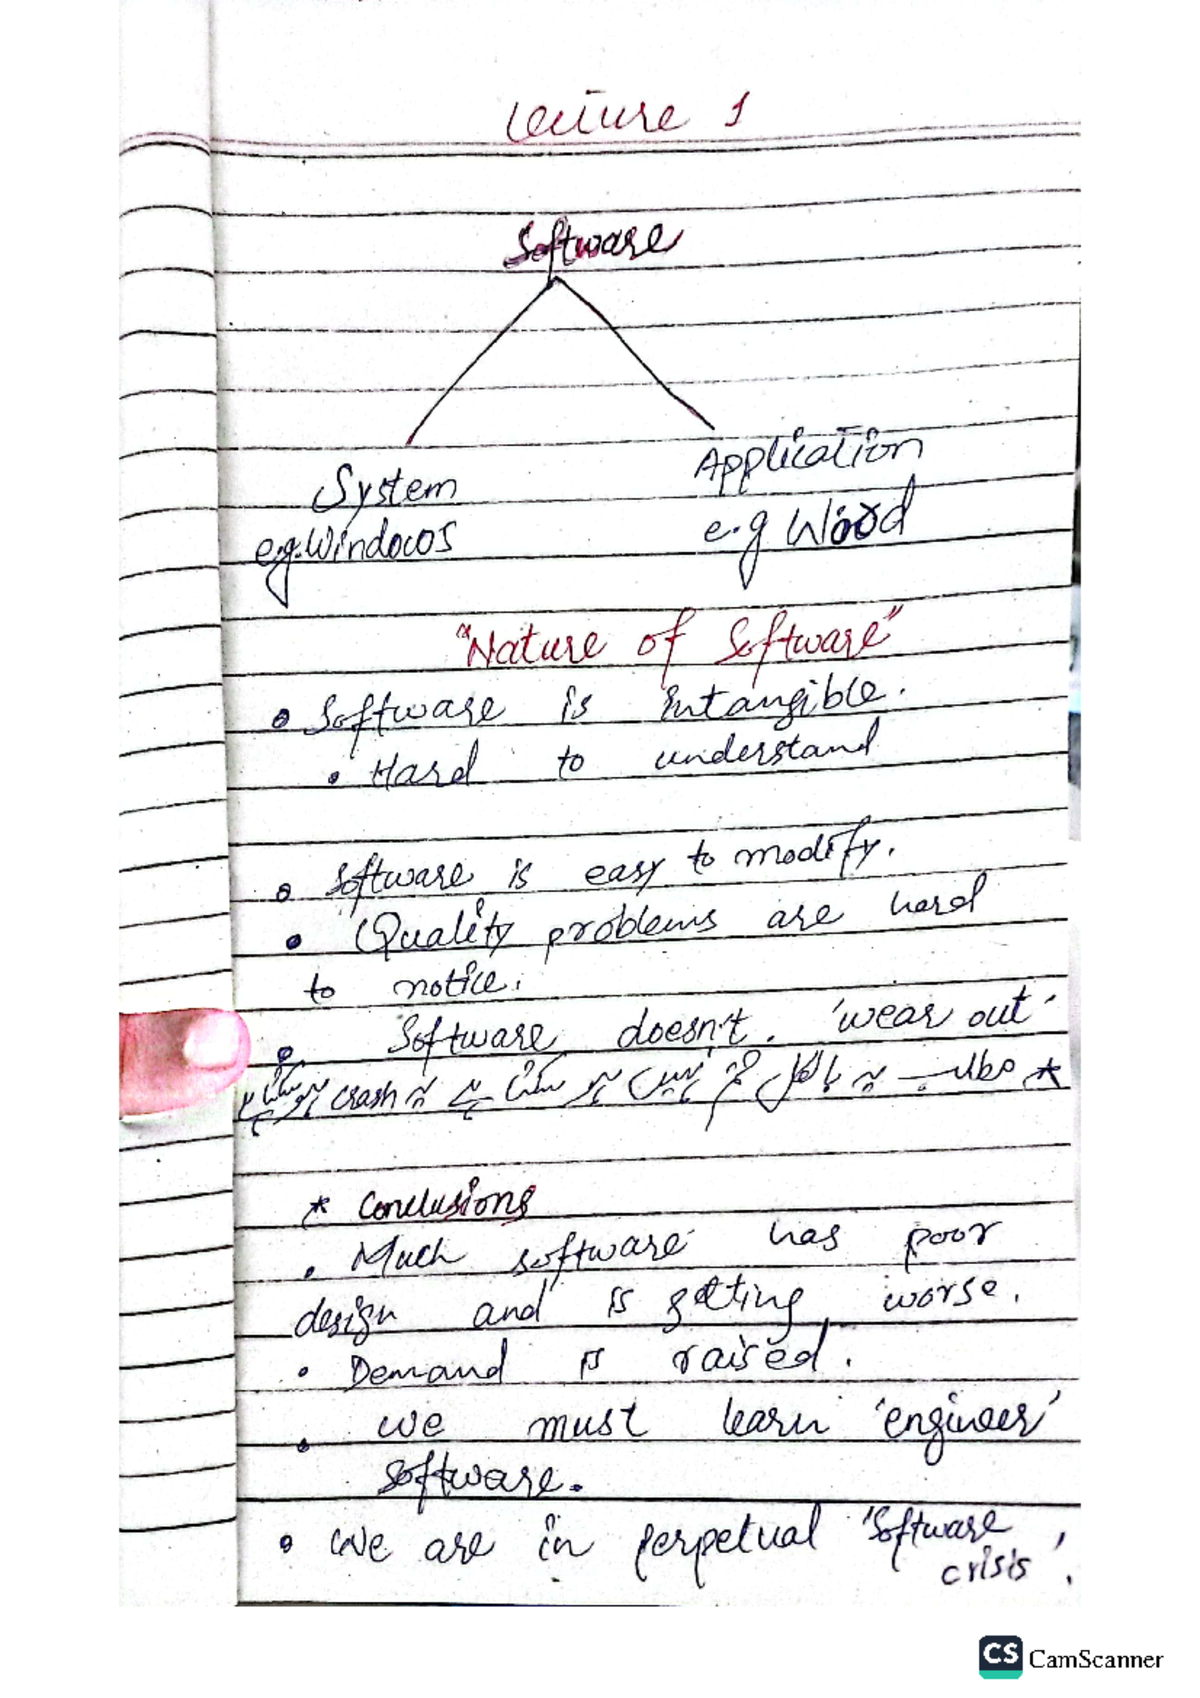 Lecture 1
Software
System
Application
e.g. Windows
e.g Word
"Nature of Software"
• Software is intangible.
• Hard to understand
• Software is easy to modify.
• Quality problems are hard
to notice.
• Software doesn't 'wear out'
* مطلب یہ بالکل ختم نہیں ہو سکتا ہے یہ crash ہو سکتا ہے
* Conclusions
• Much software has poor
design and is getting worse.
• Demand is raised.
• we must learn 'engineer'
software.
• We are in perpetual 'Software
crisis'.
CS CamScanner